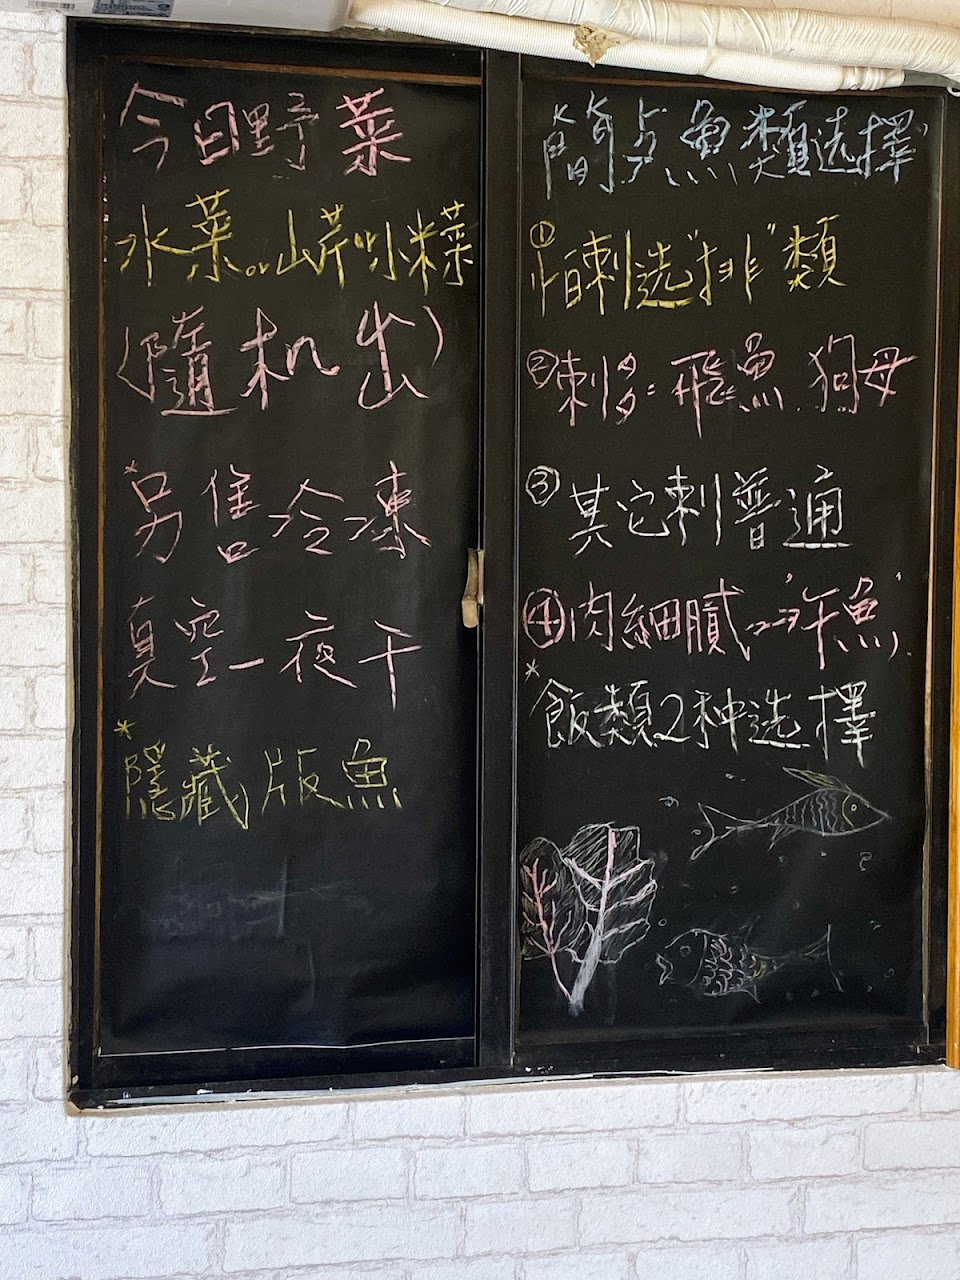 今日野菜
水菜or山芹or小糯菜
(隨机出)
*另售冷凍
真空一夜干
*隱藏版魚
簡易魚類選擇
①怕刺選"排"類
②刺多=飛魚.狗母
③其它刺普通
④肉細膩--->"午魚"
*飯類2种选擇